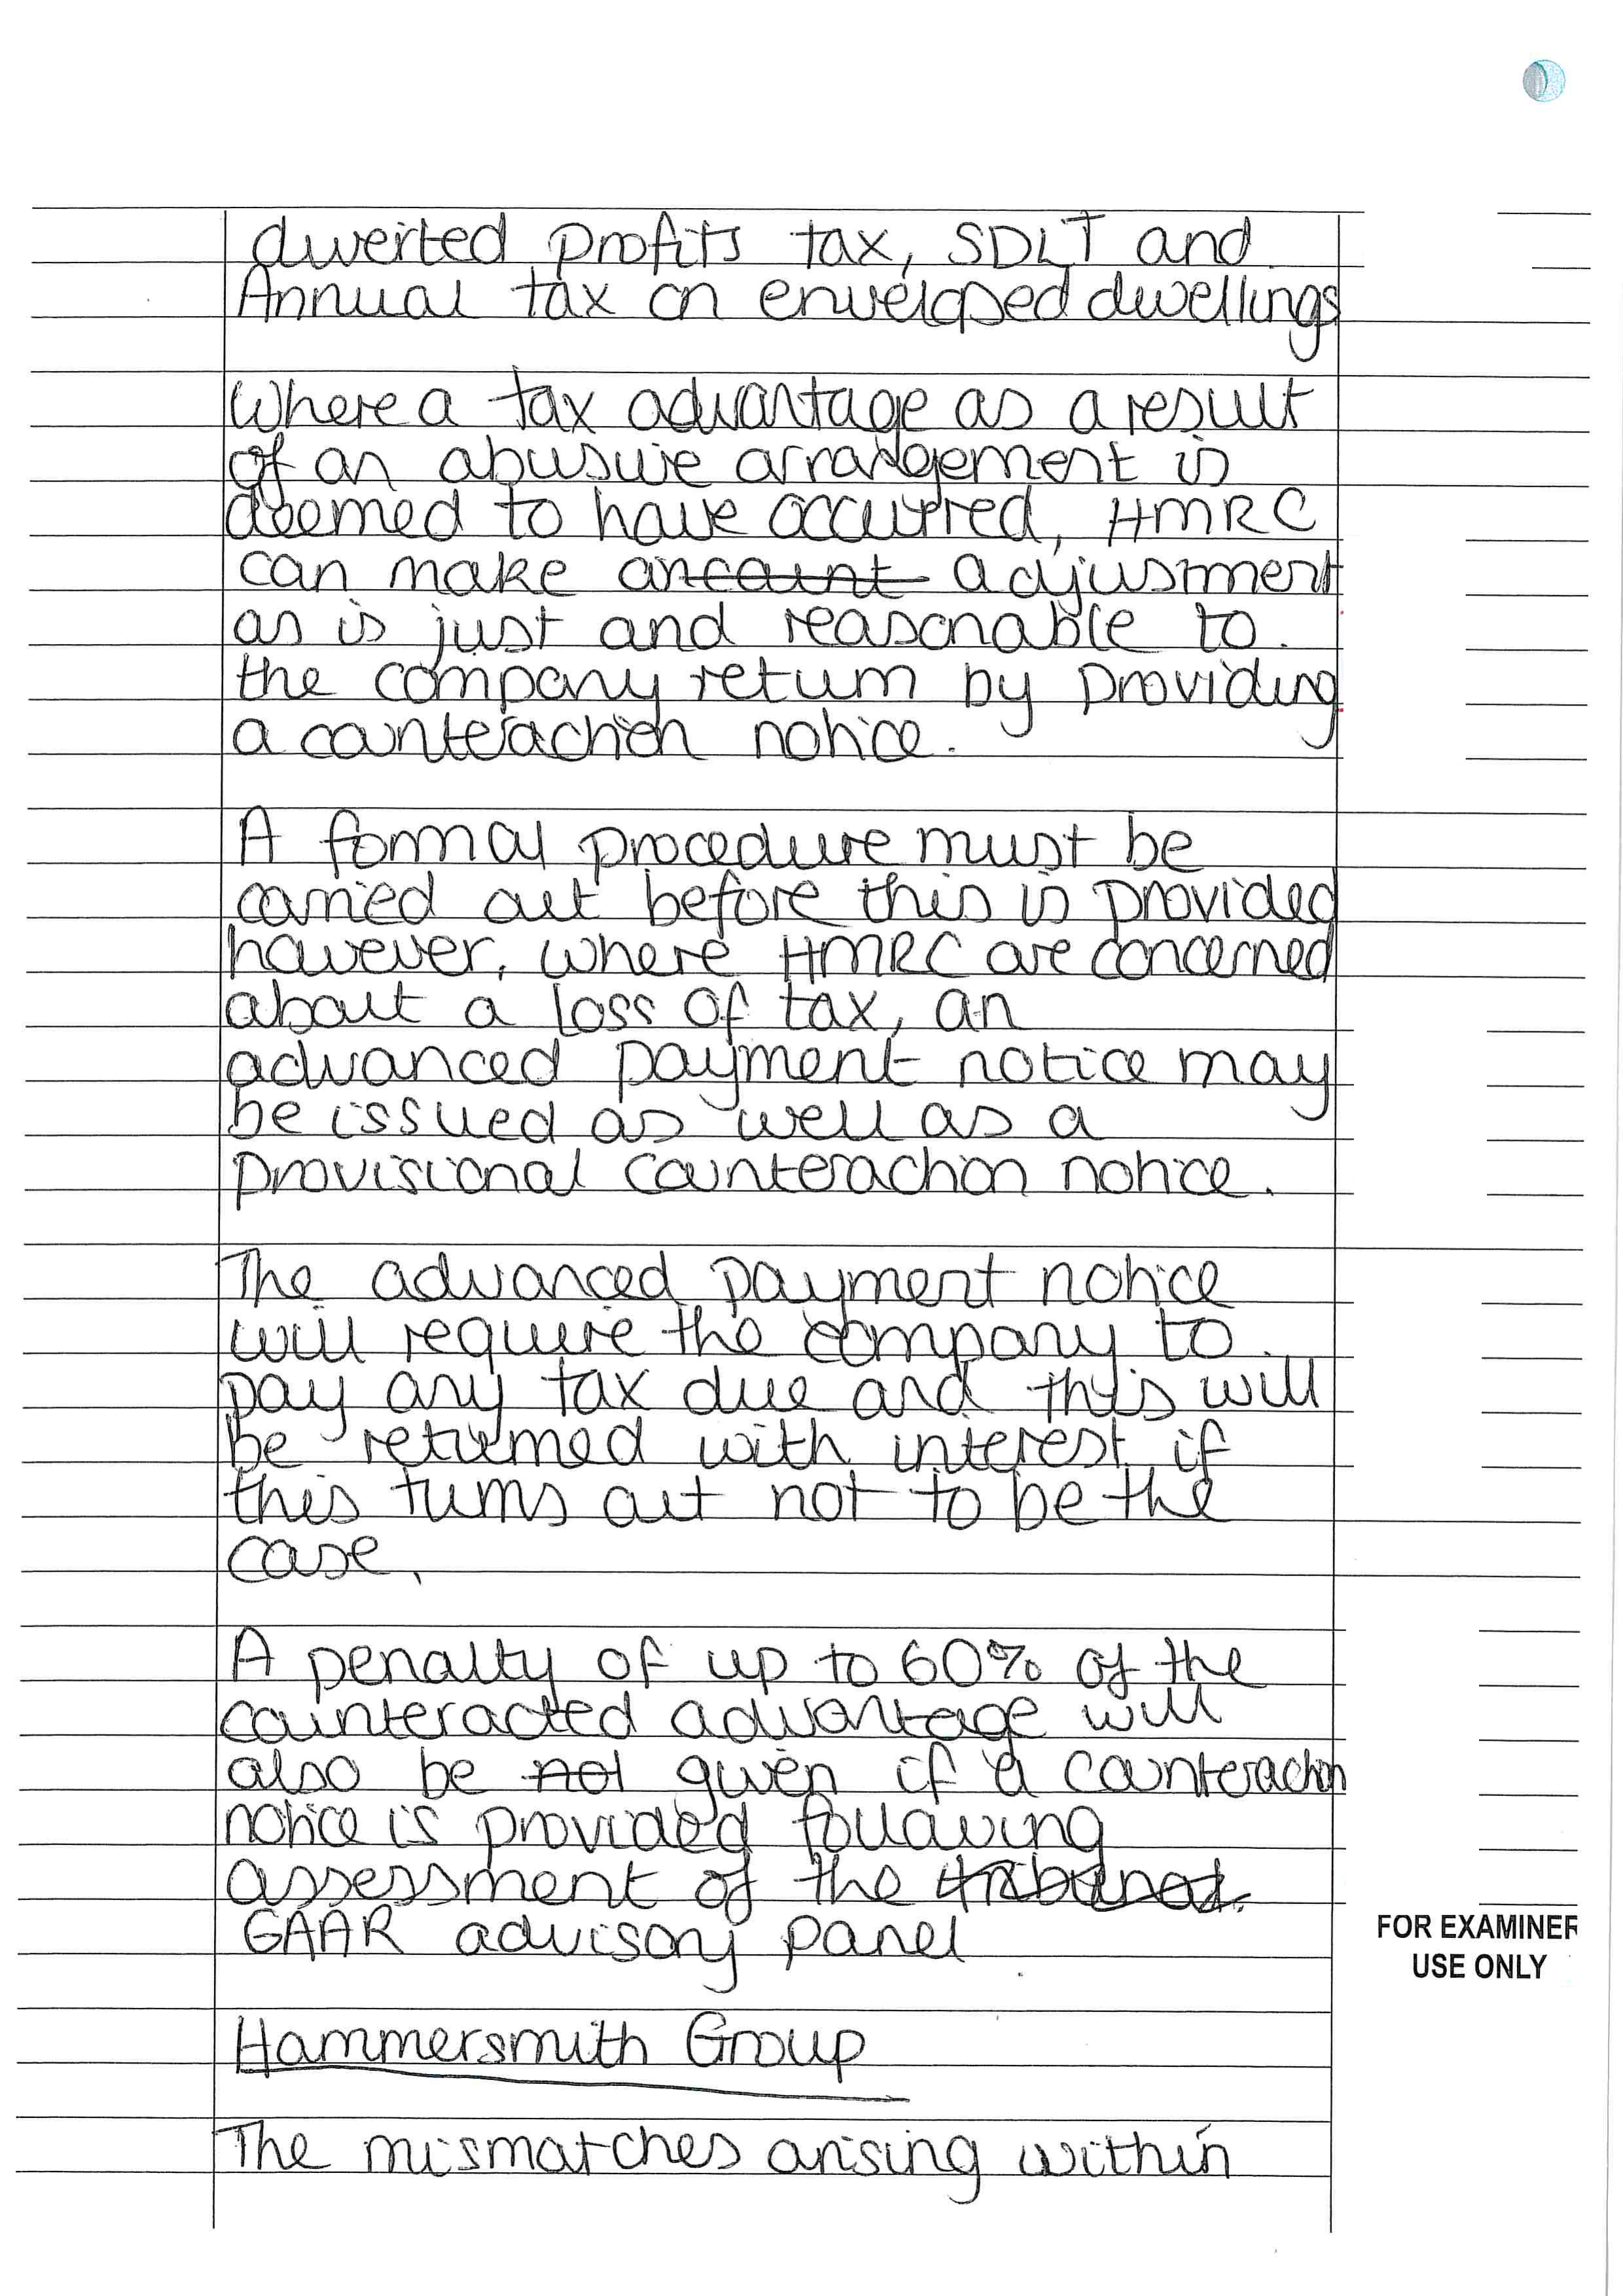 diverted profits tax, SDLT and
Annual tax on enveloped dwellings
Where a tax advantage as a result
of an abusive arrangement is
deemed to have occurred, HMRC
can make adjustment
as is just and reasonable to
the company return by providing
a counteraction notice.
A formal procedure must be
carried out before this is provided
however, where HMRC are concerned
about a loss of tax, an
advanced payment notice may
be issued as well as a
provisional counteraction notice.
The advanced payment notice
will require the company to
pay any tax due and this will
be returned with interest if
this turns out not to be the
case.
A penalty of up to 60% of the
counteracted advantage will
also be not given if a counteraction
notice is provided following
assessment of the
GAAR advisory panel
FOR EXAMINER
USE ONLY
Hammersmith Group
The mismatches arising within